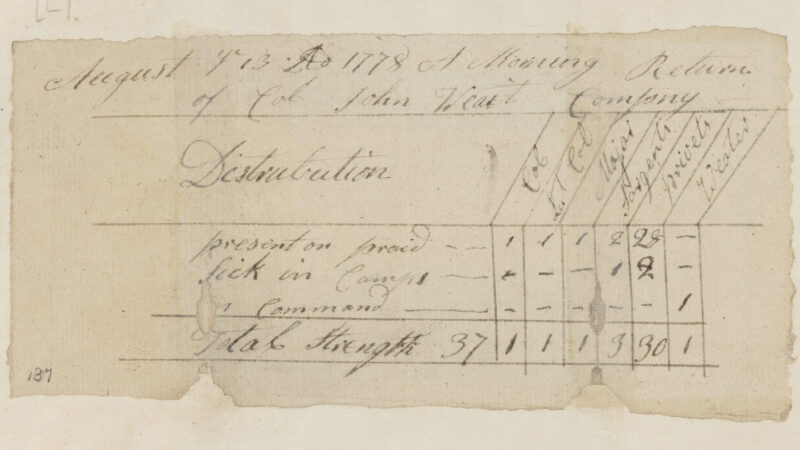 [L]
August 13 1778 A Moaring Return
of Col John Weait Company
Distrubution Col Lut Col Majar Sargents privets Weater
present on praid — — 1 1 1 2 28 —
Sick in Camps — - — — 1 2 —
Command — — — — — — 1
Total Strength 37 1 1 1 3 30 1
137